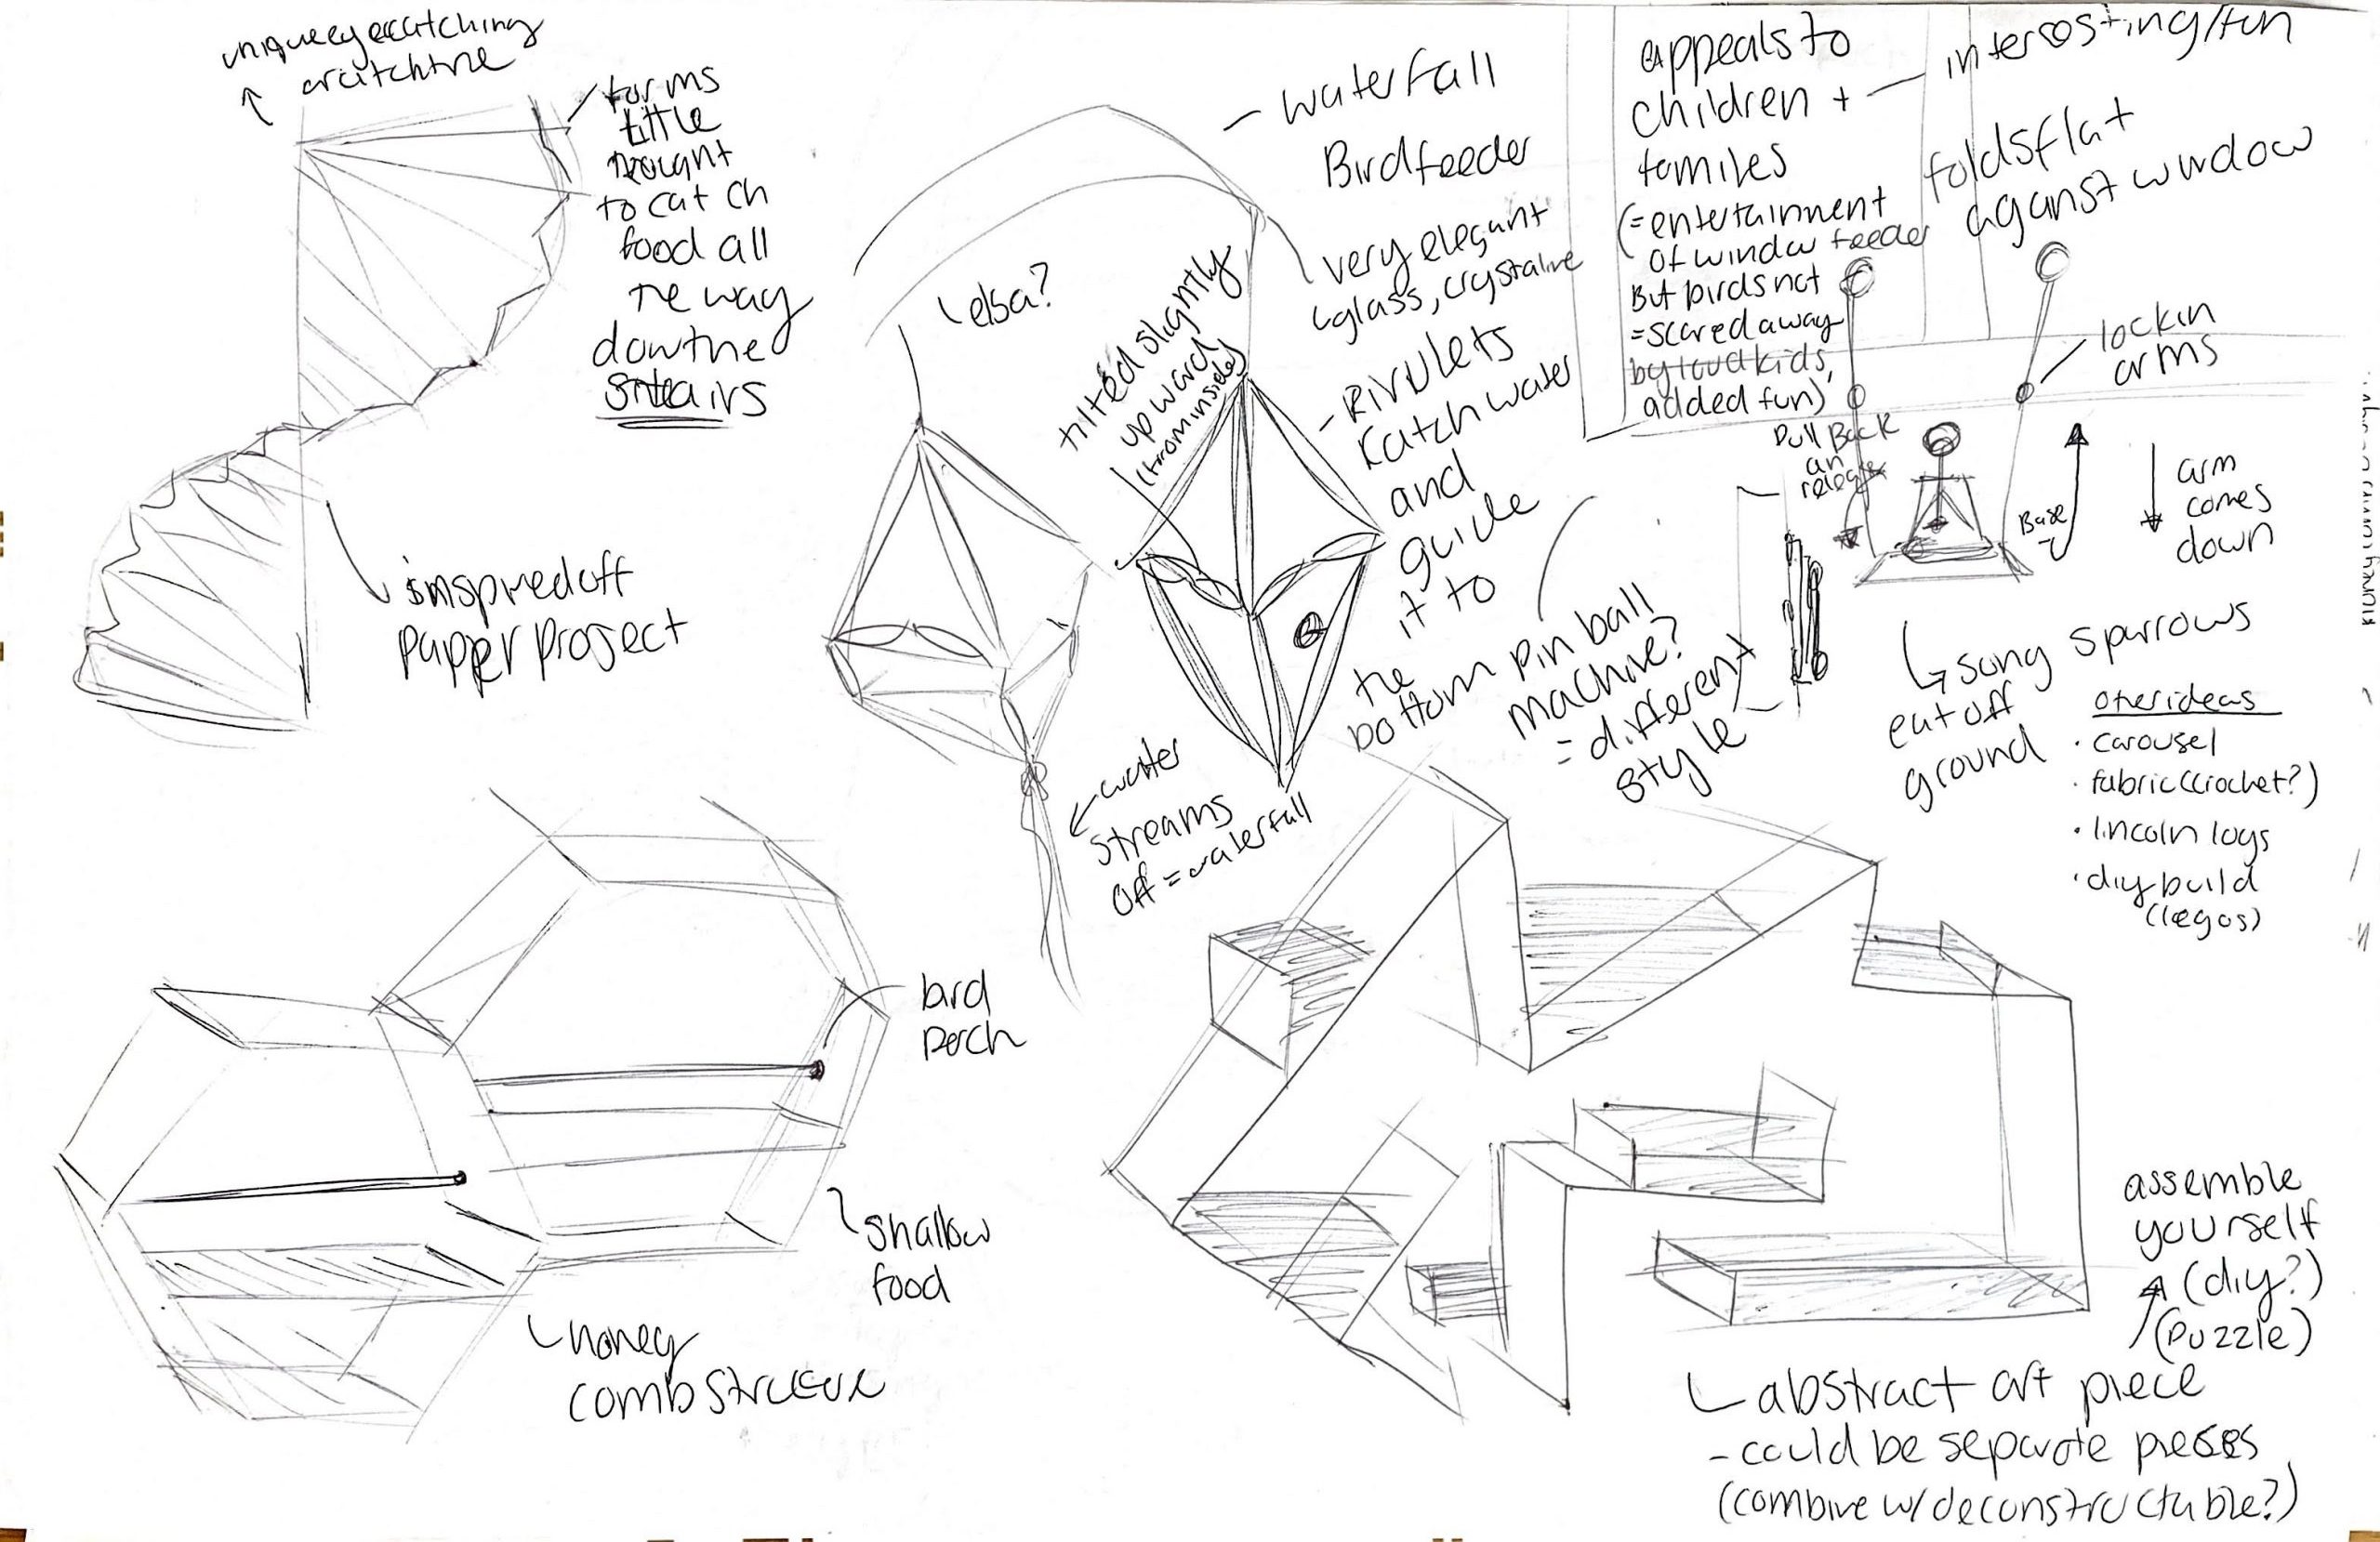 uniqueeyecatching
arcitchtre
forms
little
to catch
food all
the way
down the
stairs
inspired off
paper project
elsa?
- waterfall
Birdfeeder
very elegant
glass, crystaline
tilted slightly
upward
(from inside)
- Rivulets
Katch water
and
guide
it to
the
bottom
water
streams
off = waterfall
pin ball
machine?
= different
style
appeals to
children +
familes
(= entertainment
of window feeder
But birds not
= scared away
by loud kids,
added fun)
interesting/fun
folds flat
against window
lock in
arms
Pull Back
an
release
Base
arm
comes
down
song sparrows
eat off
ground
other ideas
· carousel
· fabric (crochet?)
· lincoln logs
· diy build
(legos)
bird
perch
shallow
food
honey
comb structure
assemble
yourself
(diy?)
(puzzle)
abstract art piece
- could be separate pieces
(combine w/ deconstructable?)